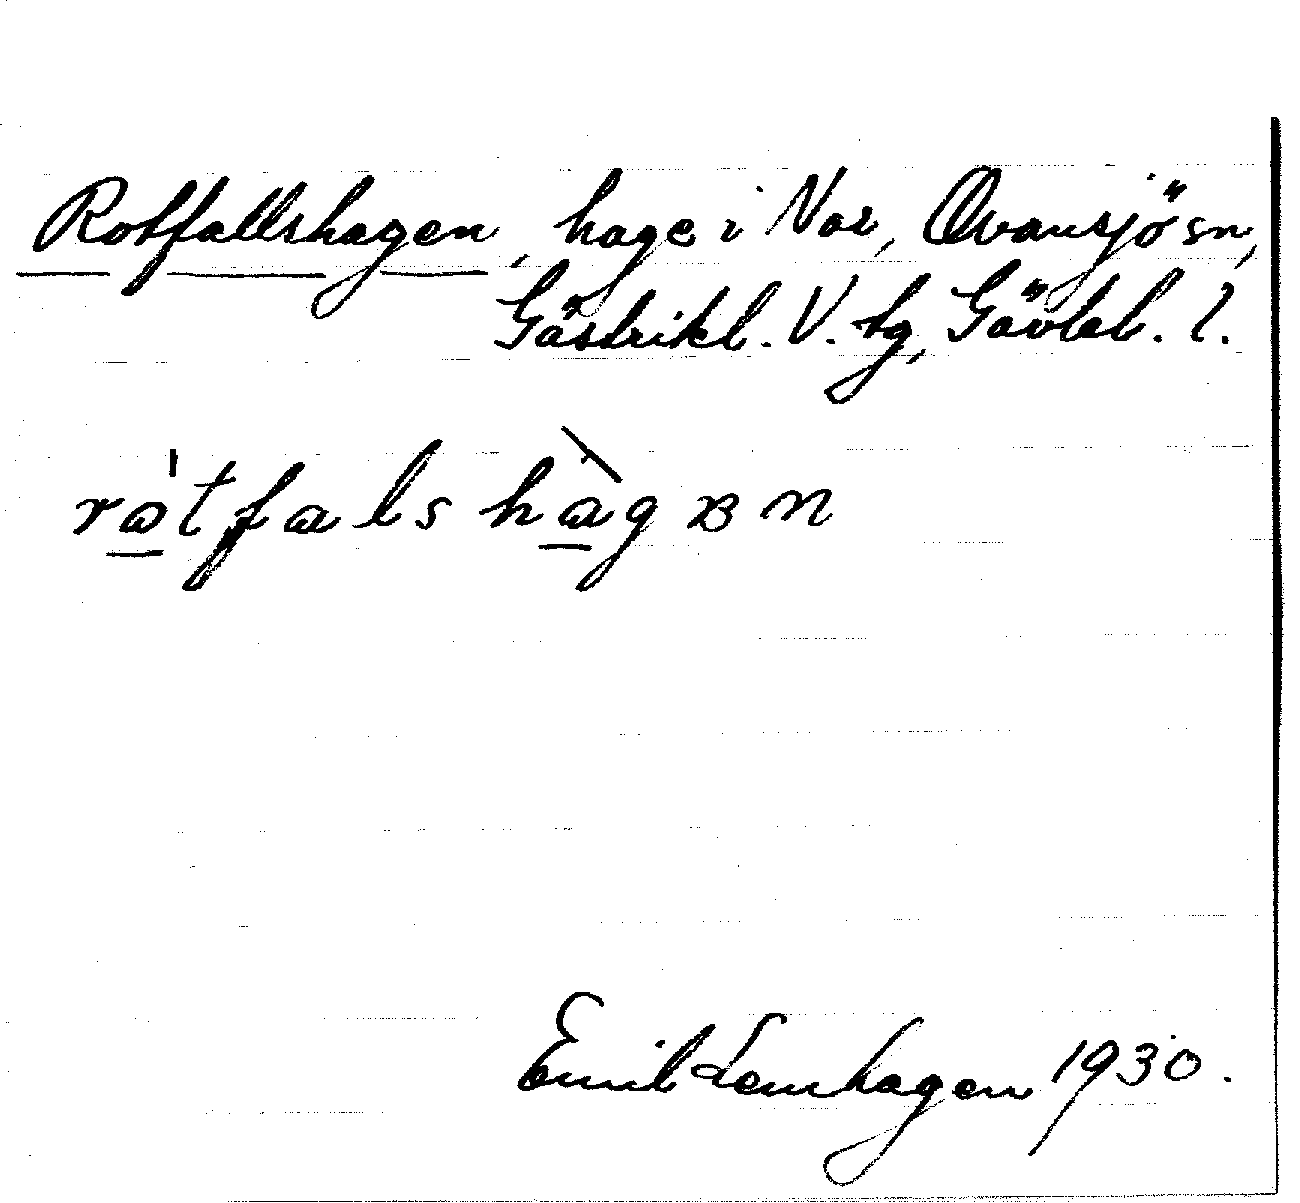 Rotfallshagen, hage i Nor, Ovansjö sn,
Gästrikl. V. tg, Gävleb. l.
ròtfals hàgən
Emil Lenhagen 1930.